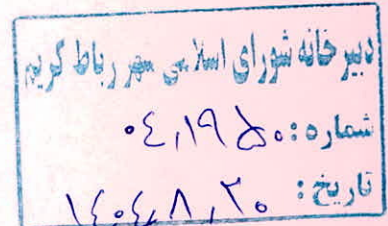 دبیرخانه شورای اسلامی شهر رباط کریم
شماره: ۰۴،۱۹۵۰
تاریخ: ۱۴۰۴،۸،۲۰